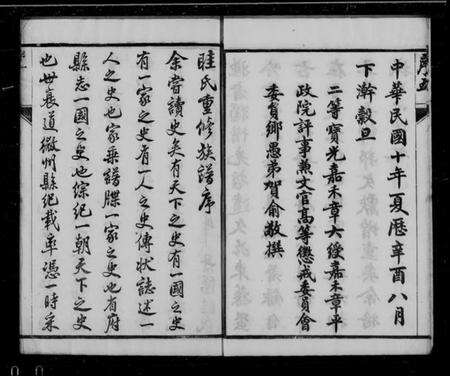 中華民國十年夏歷辛酉八月
下澣穀旦
二等寶光嘉禾章大綬嘉禾章平
政院評事兼文官高等懲戒委員會
委員鄉愚弟賀俞敬撰
眭氏重修族譜序
余嘗讀史矣有天下之史有一國之史
有一家之史有一人之史傳狀誌述一
人之史也家乘譜牒一家之史也有府
縣志一國之史也綜紀一朝天下之史
也世衰道微州縣紀載率憑一時采